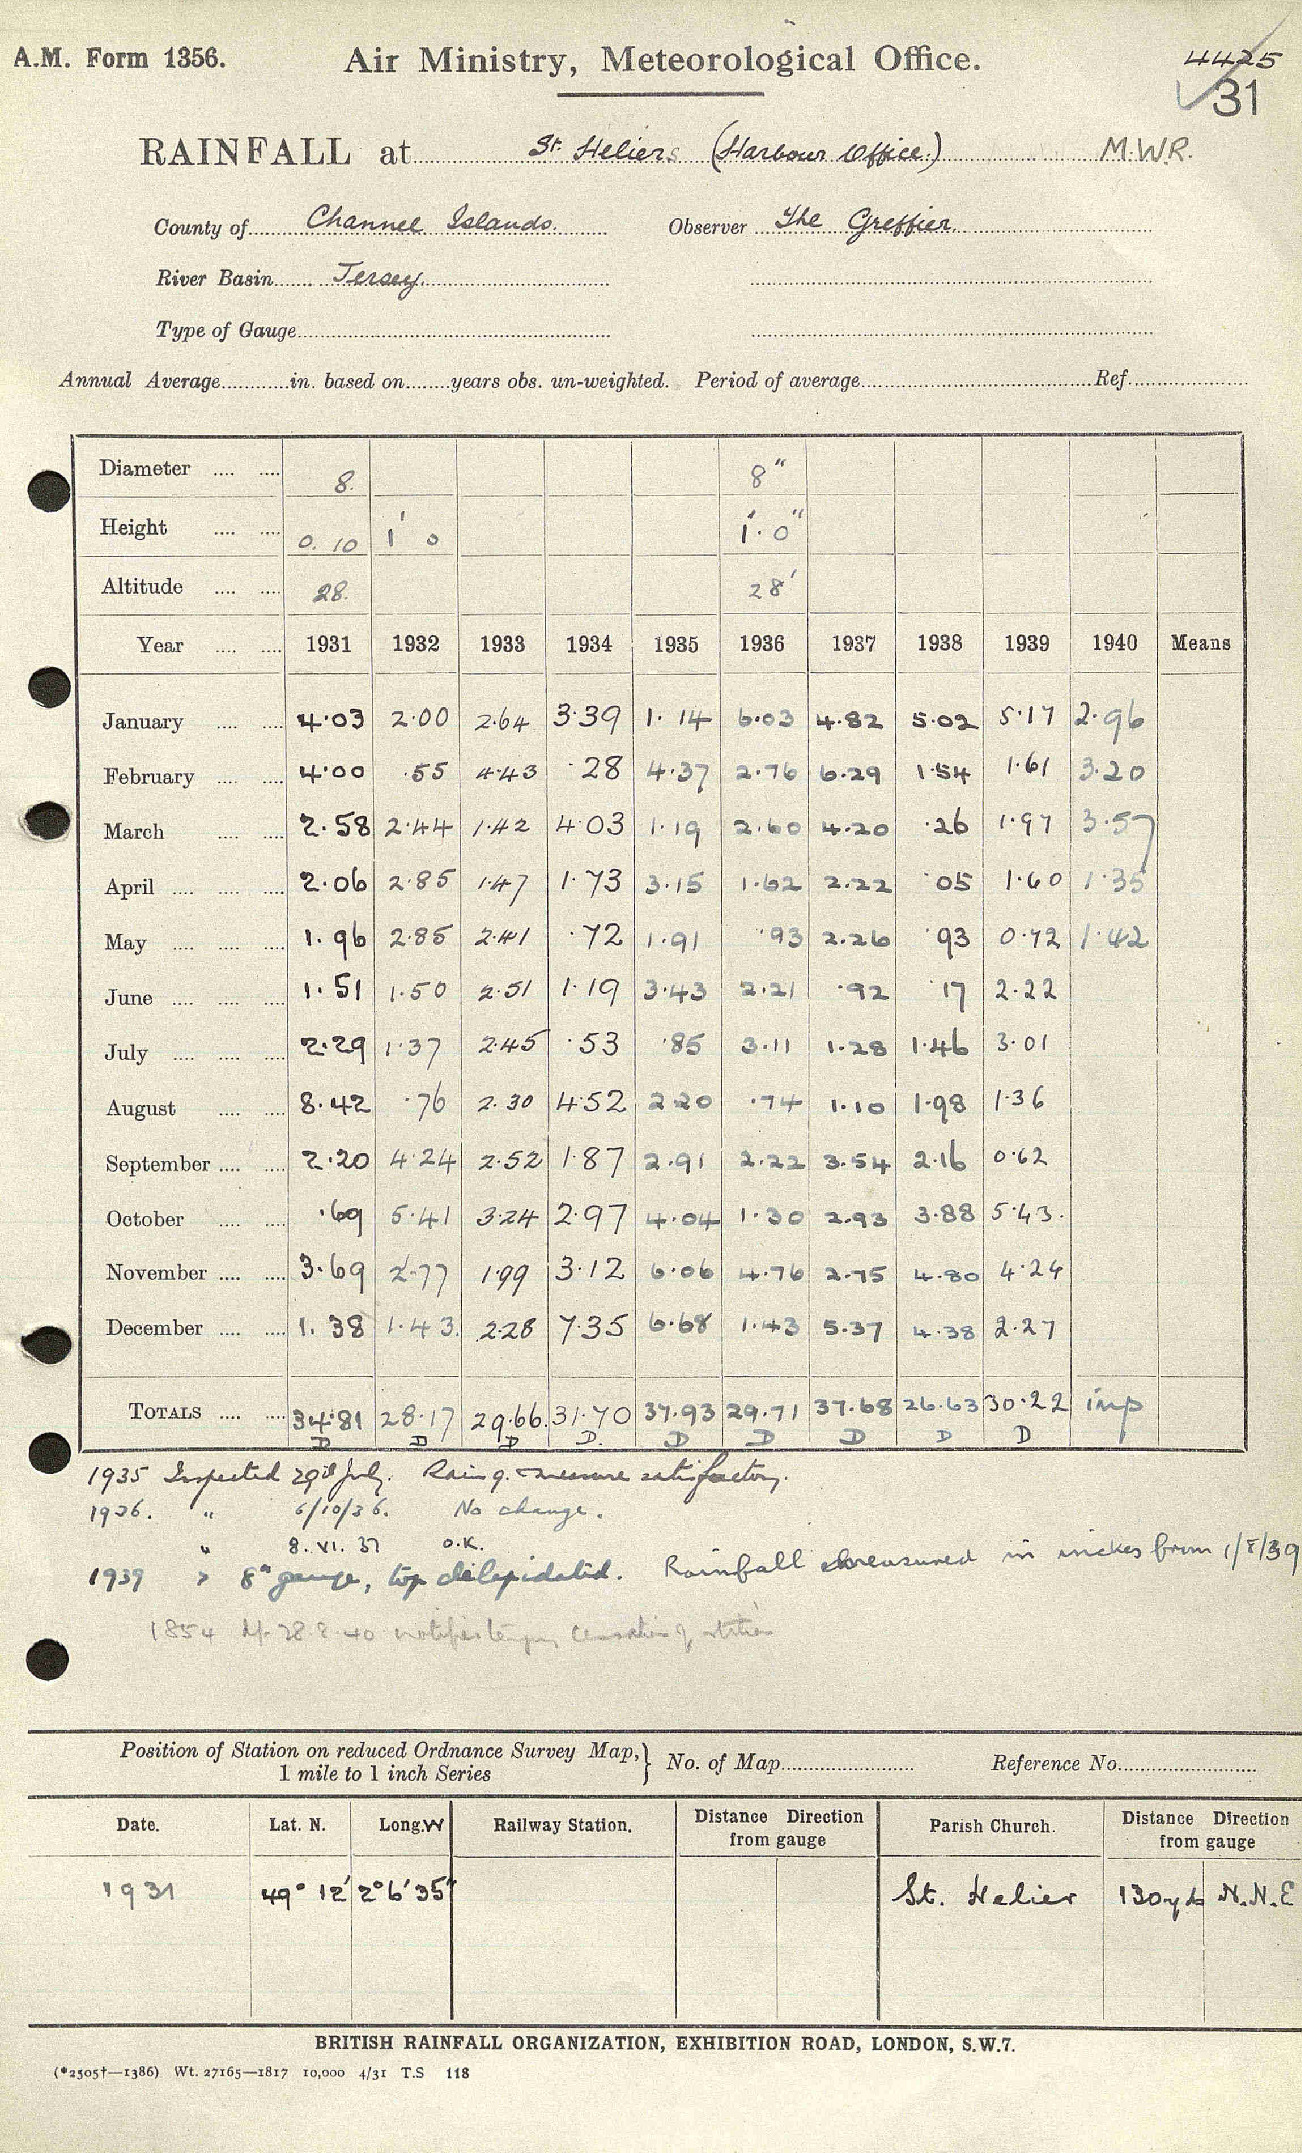 A.M. Form 1356. Air Ministry, Meteorological Office. 4425
31
RAINFALL at St. Heliers (Harbour Office.) M.W.R.
County of Channel Islands. Observer The Greffier
River Basin Jersey.
Type of Gauge
Annual Average in. based on years obs. un-weighted. Period of average Ref.
Diameter 8. 8"
Height 0. 10 1' 0 1'. 0"
Altitude 28. 28'
Year 1931 1932 1933 1934 1935 1936 1937 1938 1939 1940 Means
January 4.03 2.00 2.64 3.39 1.14 6.03 4.82 5.02 5.17 2.96
February 4.00 .55 4.43 .28 4.37 2.76 6.29 1.54 1.61 3.20
March 2.58 2.44 1.42 4.03 1.19 2.60 4.20 .26 1.97 3.57
April 2.06 2.85 1.47 1.73 3.15 1.62 2.22 .05 1.60 1.35
May 1.96 2.85 2.41 .72 1.91 .93 2.26 .93 0.72 1.42
June 1.51 1.50 2.51 1.19 3.43 2.21 .92 .17 2.22
July 2.29 1.37 2.45 .53 .85 3.11 1.28 1.46 3.01
August 8.42 .76 2.30 4.52 2.20 .74 1.10 1.98 1.36
September 2.20 4.24 2.52 1.87 2.91 2.22 3.54 2.16 0.62
October .69 5.41 3.24 2.97 4.04 1.30 2.93 3.88 5.43.
November 3.69 2.77 1.99 3.12 6.06 4.76 2.75 4.80 4.24
December 1.38 1.43. 2.28 7.35 6.68 1.43 5.37 4.38 2.27
TOTALS 34.81 28.17 29.66 31.70 37.93 29.71 37.68 26.63 30.22 imp
D D D D. D D D D D
1935 Inspected 29th July. Rain g. & measure satisfactory.
1936. " 6/10/36. No change.
" 8. VI. 37 O.K.
1939 " 8" gauge, top dilapidated. Rainfall measured in inches from 1/8/39
1854 28.8.40 cessation of station
Position of Station on reduced Ordnance Survey Map, } No. of Map Reference No.
1 mile to 1 inch Series
Date. Lat. N. Long. W Railway Station. Distance Direction from gauge Parish Church. Distance Direction from gauge
1931 49° 12' 2° 6' 35" St. Helier 130yds N.N.E
BRITISH RAINFALL ORGANIZATION, EXHIBITION ROAD, LONDON, S.W.7.
(*2505†—1386) Wt. 27165—1817 10,000 4/31 T.S 118